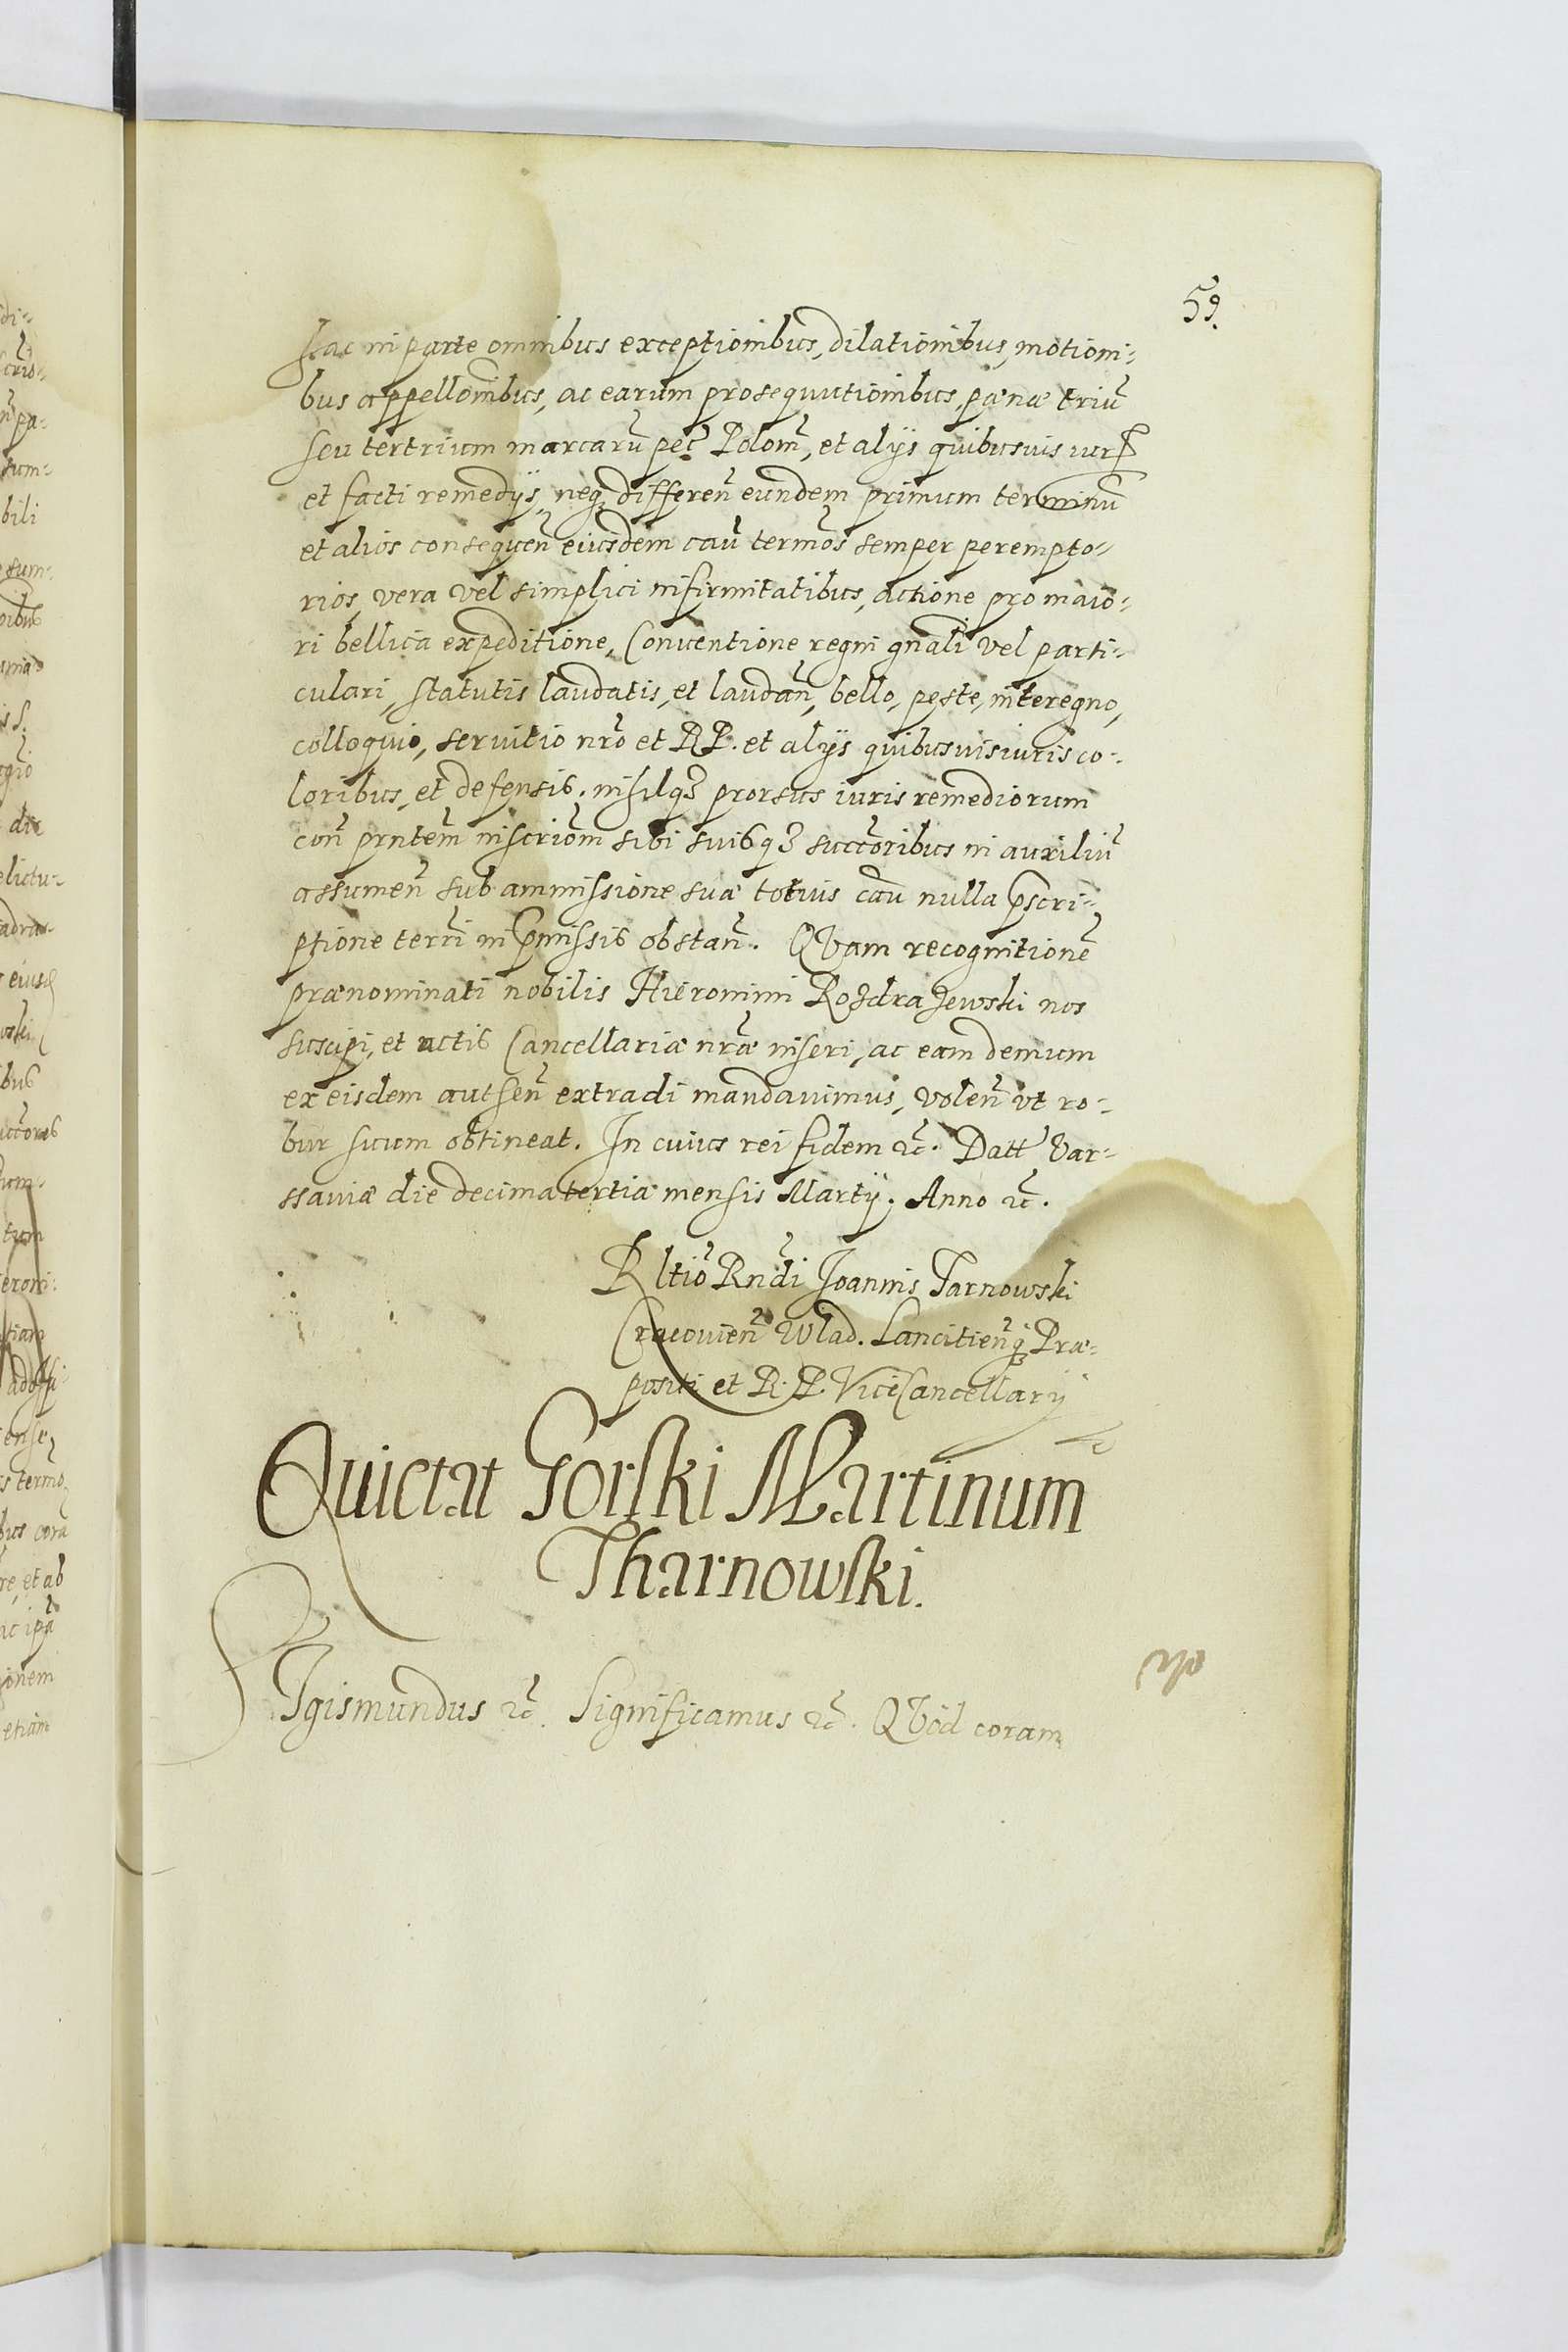 59.
Hac in parte omnibus exceptionibus, dilationibus, motioni-
bus appellonibus, ac earum prosequutionibus, pænæ triũ
seu tertrium marcarũ pec̃ Polom̃, et alijs quibusuis iuris
et facti remedijs, neq3 differeñ eundem primum terminũ
et alios consequeñ eiusdem caũ termos semper perempto-
rios, vera vel simplici infirmitatibus, actione pro maio-
ri bellica expeditione, Conuentione regni gnãli vel parti-
culari, statutis laudatis, et laudañ, bello, peste, interegno,
colloquio, seruitio nrõ et RP. et alijs quibusuis iuris co-
loribus, et defensis. nihilq3 prorsus iuris remediorum
coñ prñtem inscriõm sibi suisq3 succoribus in auxiliũ
assumeñ sub ammissione suæ totius caũ nulla p̃scri-
ptione terrĩ in p̃missis obstañ. QVam recognitionẽ
prænominati nobilis Hieronimi Rozdrazewski nos
suscipi, et actis Cancellariæ nræ inseri, ac eam demum
ex eisdem autheñ extradi mandauimus, voleñ vt ro-
bur suum obtineat. In cuius rei fidem ꝛc̃. Datt Var-
ssauiæ die decima tertia mensis Martij. Anno ꝛc̃.
Rltiõ Rnd̃i Joannis Tarnowski
Cracouieñ Wlad. Lancitieñq3 Præ-
positi et R. P. ViceCancellarij
Quietat Gorski Martinum
Tharnowski.
SIgismundus ꝛc̃. Significamus ꝛc̃. QVod coram